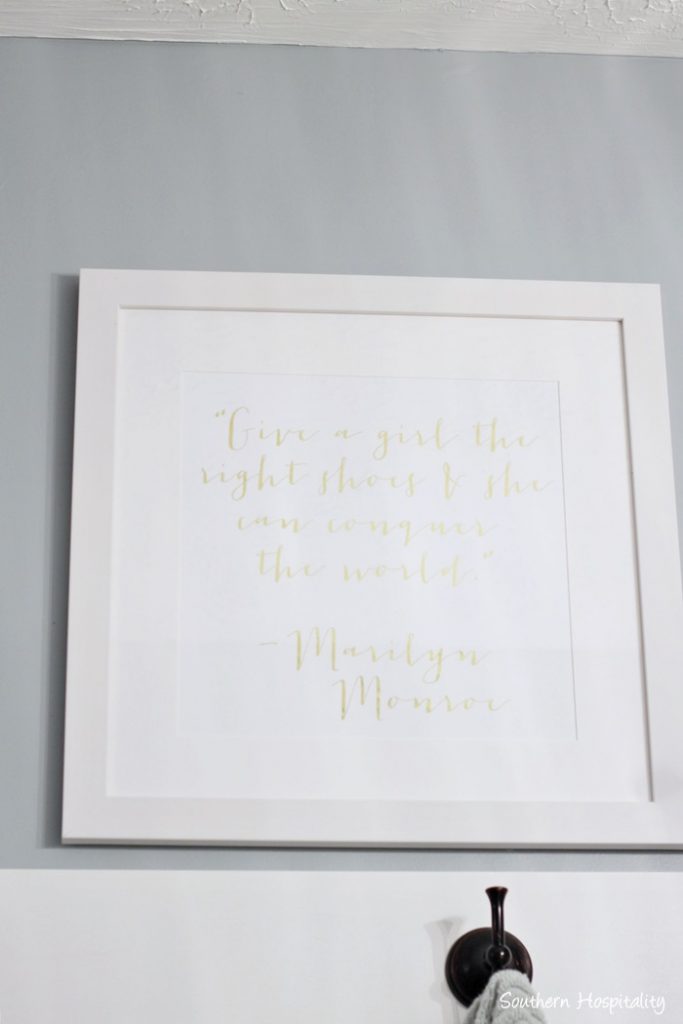 "Give a girl the
right shoes & she
can conquer
the world."
-Marilyn
Monroe
Southern Hospitality